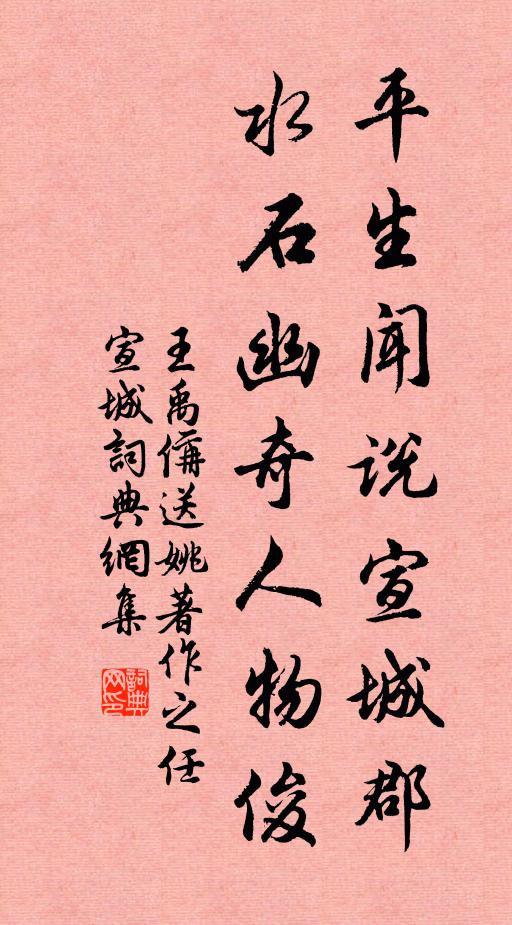 平生闻说宣城郡
水石幽奇人物俊
王禹偁送姚著作之任
宣城詞典網集
詞典网印